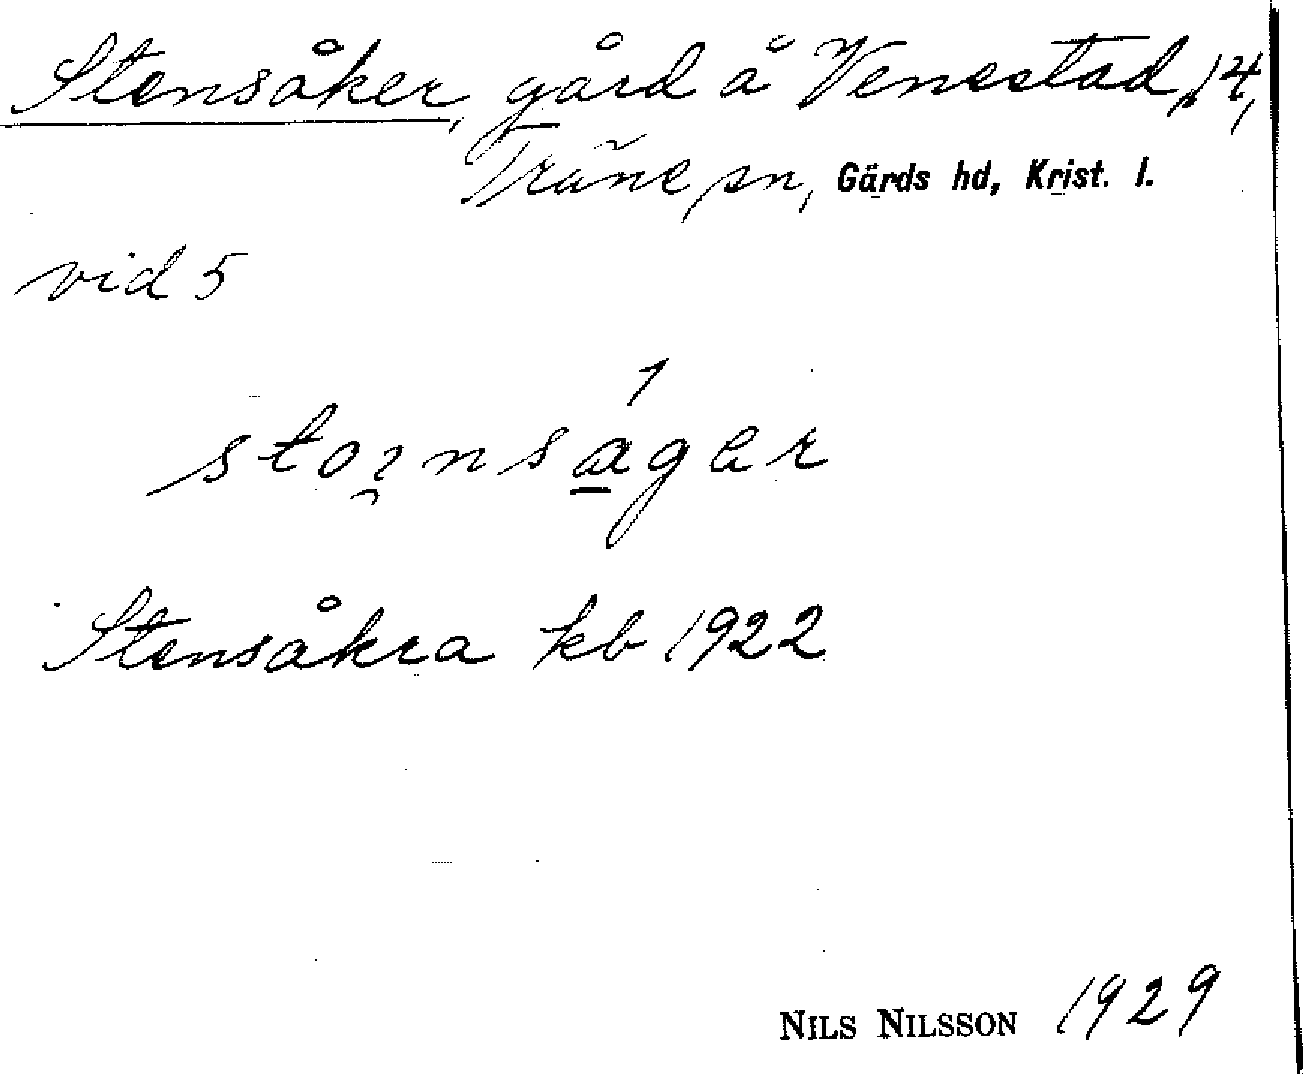 Stensåker, gård å Venestad 14,
Träne sn, Gärds hd, Krist. l.
vid 5
Stensåkra kb 1922
NILS NILSSON 1929